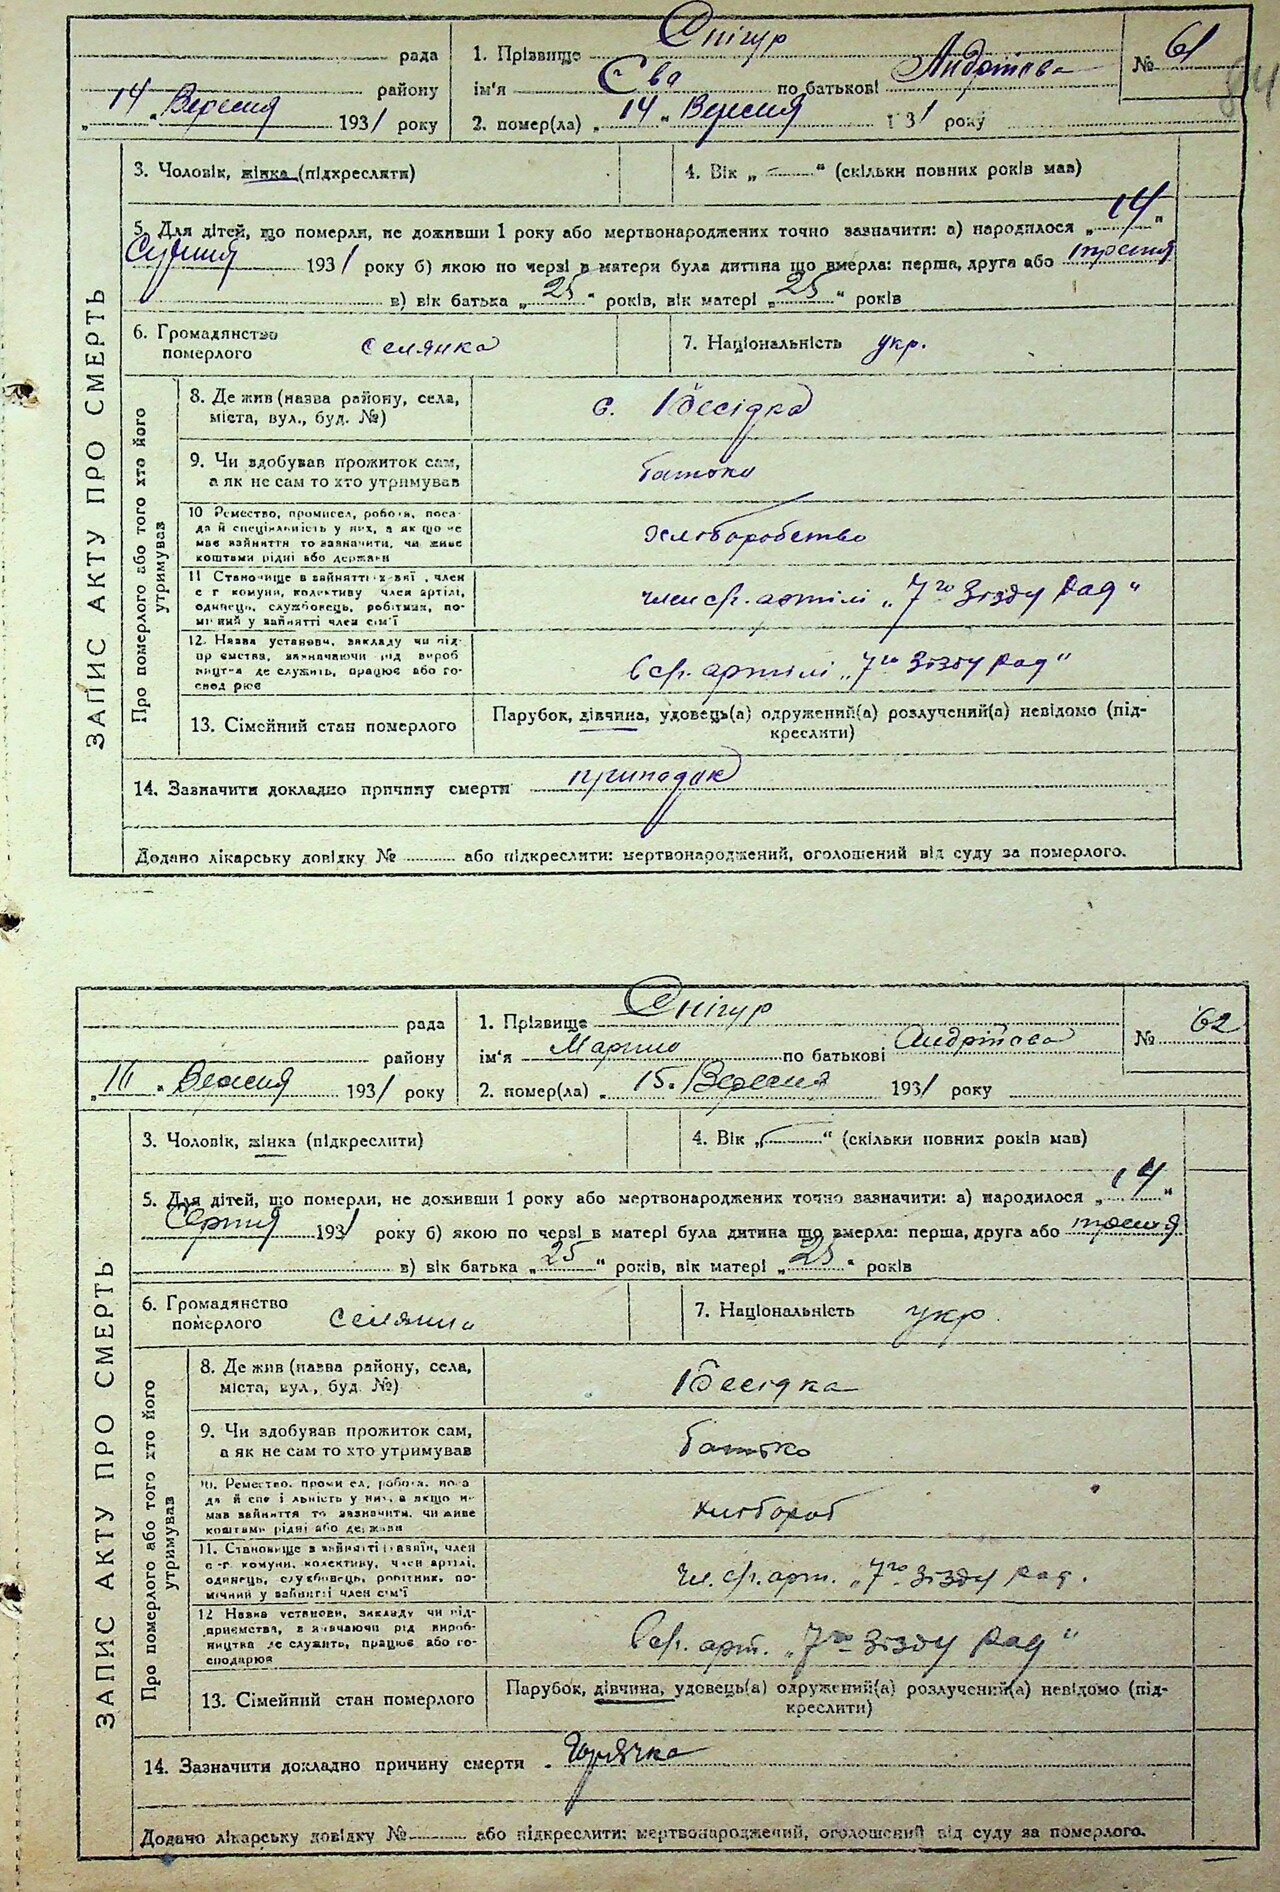 рада
району
„ 14 „ Вересня 1931 року
1. Прізвище Снігур
ім'я Єва по батькові Андріївна
2. помер(ла) „ 14 „ Вересня 1931 року
№ 61
84
3. Чоловік, жінка (підкреслити)
4. Вік „ — “ (скільки повних років мав)
5. Для дітей, що померли, не доживши 1 року або мертвонароджених точно зазначити: а) народилося „ 14 “
1931 року б) якою по черзі в матери була дитина що вмерла: перша, друга або третя
в) вік батька „ 25 “ років, вік матері „ 25 “ років
6. Громадянство
померлого селянка
7. Національність укр.
ЗАПИС АКТУ ПРО СМЕРТЬ
Про померлого або того хто його
утримував
8. Де жив (назва району, села,
міста, вул., буд. №)
с. І Бесідка
9. Чи здобував прожиток сам,
а як не сам то хто утримував
батько
10 Ремество, промисел, робота, поса-
да й спеціяльність у них, а як що не
має зайняття то зазначити, чи живе
коштами рідні або держави
хліборобство
11 Становище в зайнятті х ввї , член
с г комуни, колективу член артілі,
одинець, службовець, робітник, по-
мічний у зайнятті член сім'ї
член с/г. артілі „7го Зїзду Рад“
12. Назва установи, закладу чи під-
пр ємства, зазначаючи рід вироб
ництва де служить, працює або го-
спод рює
в с/г. артілі „7го Зїзду Рад“
13. Сімейний стан померлого
Парубок, дівчина, удовець(а) одружений(а) розлучений(а) невідомо (під-
креслити)
14. Зазначити докладно причину смерти припадок
Додано лікарську довідку № або підкреслити: мертвонароджений, оголошений від суду за померлого.
рада
району
„ 16 „ Вересня 1931 року
1. Прізвище Снігур
ім'я по батькові Андріївна
2. помер(ла) „ 15. Вересня 1931 року
№ 62
3. Чоловік, жінка (підкреслити)
4. Вік „ — “ (скільки повних років мав)
5. Для дітей, що померли, не доживши 1 року або мертвонароджених точно зазначити: а) народилося „ 14 “
Серпня 1931 року б) якою по черзі в матері була дитина що вмерла: перша, друга або третя
в) вік батька „ 25 “ років, вік матері „ 25 “ років
6. Громадянство
померлого
7. Національність укр.
ЗАПИС АКТУ ПРО СМЕРТЬ
Про померлого або того хто його
утримував
8. Де жив (назва району, села,
міста, вул., буд. №)
І Бесідка
9. Чи здобував прожиток сам,
а як не сам то хто утримував
батько
10. Ремество, проми ел, робота, поса
да й спе і льність у них, а якщо н-
має зайняття то зазначити, чи живе
коштами рідні або держави
хлібороб
11. Становище в зайнятті назвїн, член
с-г. комуни, колективу, член артілі,
одинець, службовець, робітник, по-
мічний у зайнятті член сім'ї
чл. с/г. арт. „7го Зїзду Рад.
12 Назва установи, закладу чи під-
приємства, зазначаючи рід вироб-
ництва де служить, працює або го-
сподарює
в с/г. арт. „7го Зїзду Рад“
13. Сімейний стан померлого
Парубок, дівчина, удовець(а) одружений(а) розлучений(а) невідомо (під-
креслити)
14. Зазначити докладно причину смерти Горячка
Додано лікарську довідку № або підкреслити: мертвонароджений, оголошений від суду за померлого.